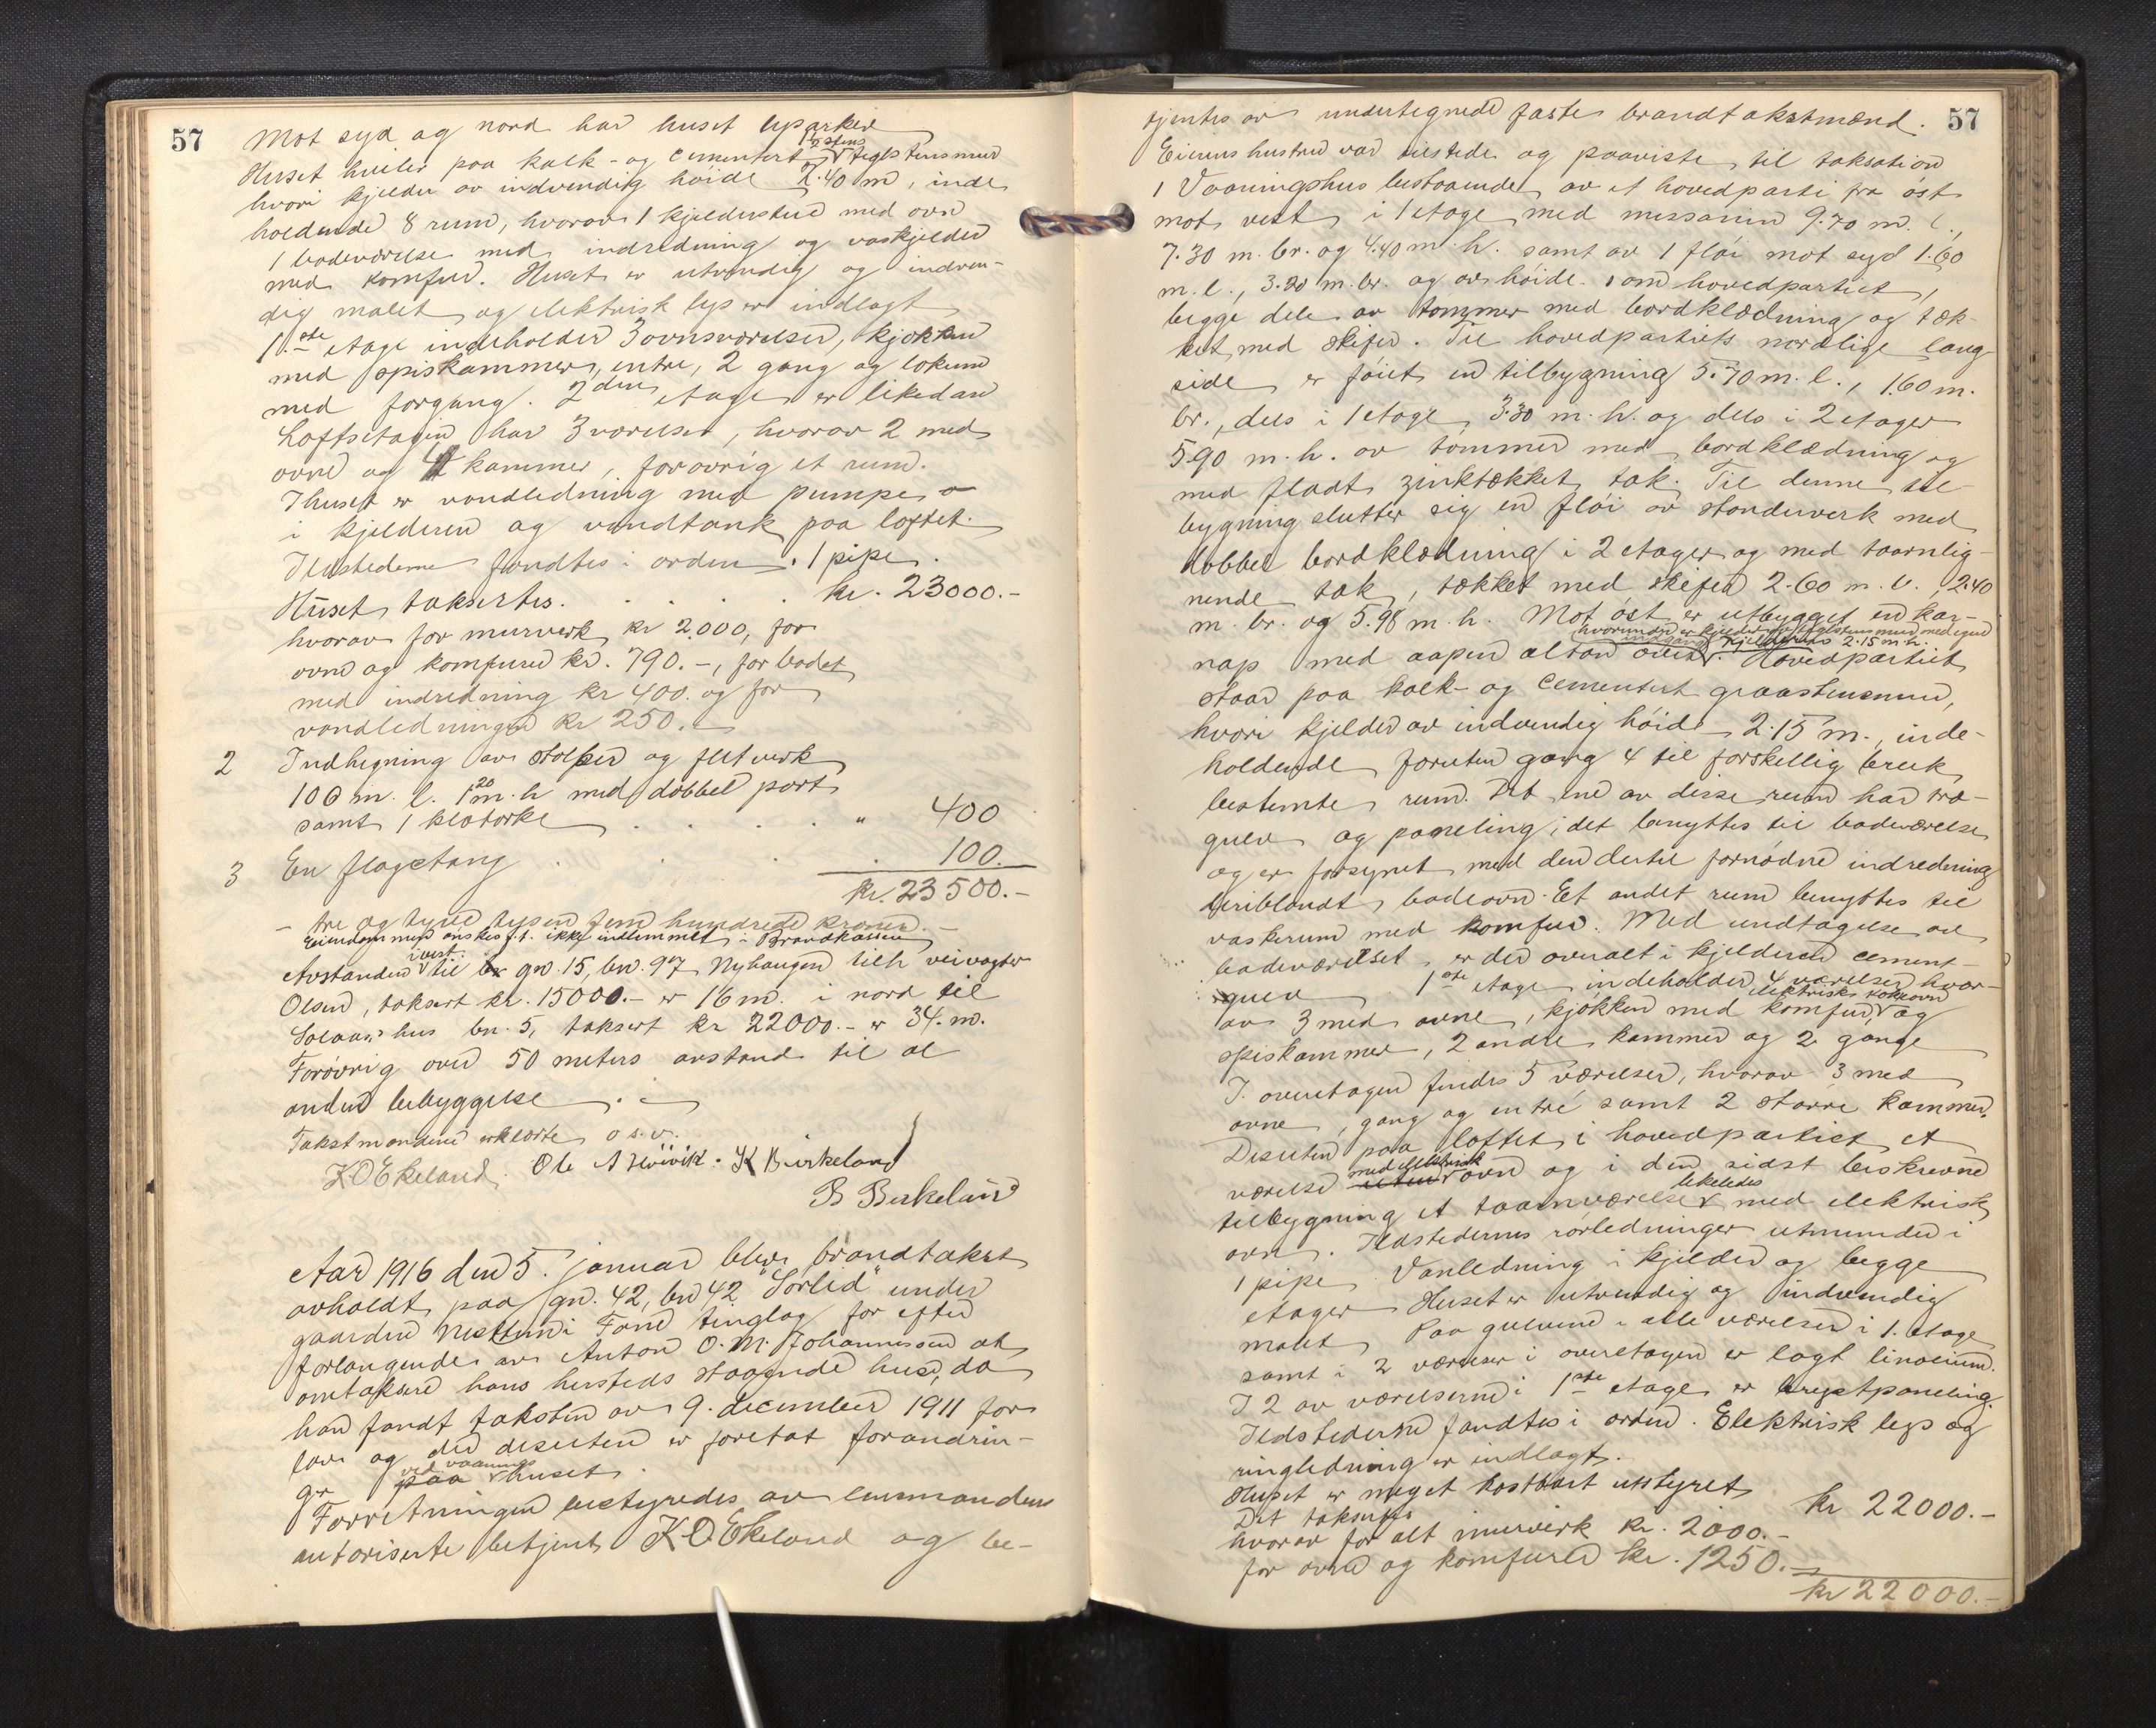 57
Mot syd og nord har huset uparker
Huset hviler paa kalk- og cementert 1½ stens teglstensmur
hvori kjelder av indvendig høide 2.40 m, inde
holdende 8 rum, hvorav 1 kjelderstue med ovn
1 badeværelse med indredning og vaskjelder
med komfur. Huset er utvendig og indven-
dig malet og elektrisk lys er indlagt
1.ste etage indeholder 3 ovnsværelser, kjøkken
med spiskammer, entre, 2 gang og lokum
med forgang. 2den etage er likedan
Loftsetagen har 3 værelser, hvorav 2 med
ovne og 4 kammer, forøvrig et rum.
I huset er vandledning med pumpe
i kjelderen og vandtank paa loftet.
Ildstederne fandtes i orden. 1 pipe.
Huset taksertes. . . . . kr. 23000.-
hvorav for murverk kr 2.000, for
ovne og komfurer kr. 790.-, for badet
med indredning kr 400. og for
vandledningen kr 250.-
2 Indhegning av stolper og fletverk
100 m. l. 1 20 m. h med dobbel port
samt 1 klotørke . . . . " 400
3 En flagstang . . . . 100.
kr. 23500.-
- tre og tyve tusen fem hundrede kroner. -
Eiendommen ønskes f.t. ikke indlemmet i Brandkassen
Avstanden i vest til gn. 15, bn. 97 Nyhaugen tilh veivogter
Olsen, taksert kr. 15000.- er 16 m. i nord til
Solaas hus bn. 5, taksert kr 22000.- er 34. m.
Forøvrig over 50 meters avstand til al
anden bebyggelse . -
Takstmændene erklærte o.s.v.
K O Ekeland. Ole A Høivik. K Birkeland
B Birkeland
Aar 1916 den 5. januar blev brandtakst
avholdt paa gn. 42, bn 42 "Sørlid" under
gaarden Nesttun i Fane tinglag for efter
forlangende av Anton O. M. Johannessen at
omtaksere hans hersteds staaende huse, da
han fandt taksten av 9. december 1911 for
lav og der desuten er foretat forandrin-
ger paa ved vaanings huset.
Forretningen bestyredes av lensmandens
autoriserte betjent K O Ekeland og be-
57
tjentes av undertegnede faste brandtakstmænd.
Eierens hustru var tilstede og paaviste til taksation
1 Vaaningshus bestaaende av et hovedparti fra øst
mot vest i 1 etage med messanin 9.70 m. l.,
7.30 m. br. og 4.40 m. h. samt av 1 fløi mot syd 1.60
m. l., 3.20 m. br. og av høide som hovedpartiet,
begge dele av tømmer med bordklædning og tæk-
ket med skifer. Til hovedpartiets nordlige lang
side er føiet en tilbygning 5.70 m. l., 1.60 m.
br., dels i 1 etage 3.30 m. h. og dels i 2 etager
5.90 m. h. av tømmer med bordklædning og
med fladt zinktækket tak. Til denne til
bygning slutter sig en fløi av stenderverk med
dobbel bordklædning i 2 etager og med taarnlig-
nende tak, tækket med skifer 2.60 m. l., 2.40
m. br. og 5.98 m. h. Mot øst er utbygget en kar-
hvorunder er kjelder av teglstensmur med egen
indgang kjelderens 2.15 m. h.
nap med aapen altan over. Hovedpartiet
staar paa kalk- og cementert graastensmur,
hvori kjelder av indvendig høide 2.15 m., inde-
holdende foruten gang 4 til forskellig bruk
bestemte rum. Det ene av disse rum har træ-
gulv og paneling, det benyttes til badeværelse
og er forsynet med den dertil fornødne indredning
deriblandt badeovn. Et andet rum benyttes til
vaskerum med komfur. Med undtagelse av
badeværelset er der overalt i kjelderen cement-
gulv 1ste etage indeholder 4 værelser hvor-
av 3 med ovne, kjøkken med komfur, elektrisk kokeovn og
spiskammer, 2 andre kammer og 2 gange
I overetagen findes 5 værelser, hvorav 3 med
ovne, gang og entré samt 2 større kammer.
Desuten paa loftet i hovedpartiet et
værelse uten med elektrisk ovn og i den sidst beskrevne
tilbygning et taarnværelse likeledes med elektrisk
ovn. Ildstedernes rørledninger utmunder i
1 pipe Vanledning i kjelder og begge
etager Huset er utvendig og indvendig
malet Paa gulvene i alle værelser i 1. etage
samt i 2 værelser i overetagen er lagt linoleum.
I 2 av værelserne i 1ste etage er brystpaneling.
Ildstederne fandtes i orden. Elektrisk lys og
ringledning er indlagt.
Huset er meget kostbart utstyret
Det taksertes kr 22000.-
hvorav for alt murverk kr. 2000.-
for ovne og komfurer kr. 1250.-
kr 22000.-